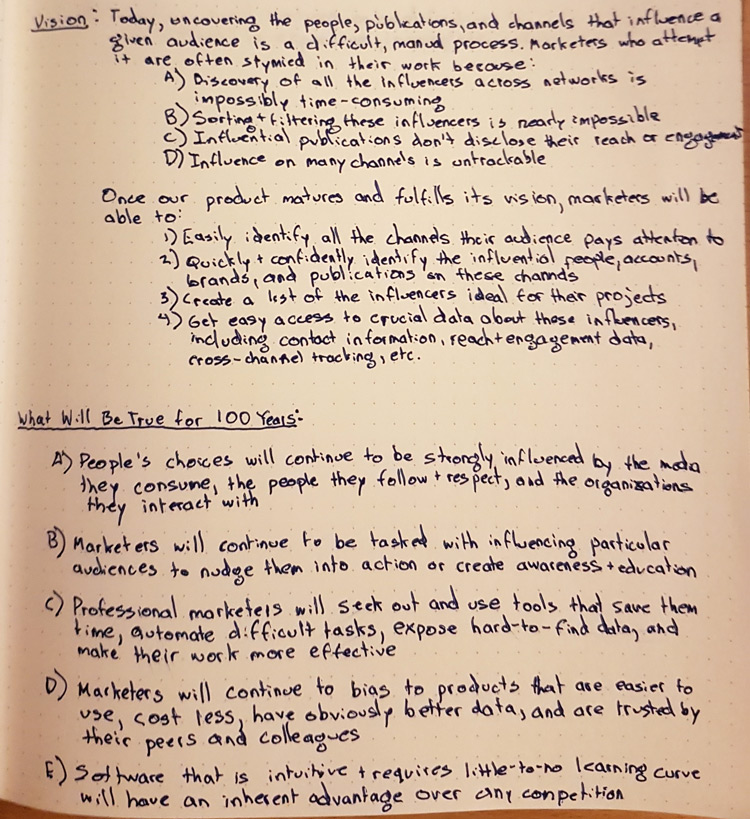 Vision: Today, uncovering the people, publications, and channels that influence a
given audience is a difficult, manual process. Marketers who attempt
it are often stymied in their work because:
A) Discovery of all the influencers across networks is
impossibly time-consuming
B) Sorting + filtering these influencers is nearly impossible
C) Influential publications don't disclose their reach or engagement
D) Influence on many channels is untrackable
Once our product matures and fulfills its vision, marketers will be
able to:
1) Easily identify all the channels their audience pays attention to
2) Quickly + confidently identify the influential people, accounts,
brands, and publications on these channels
3) Create a list of the influencers ideal for their projects
4) Get easy access to crucial data about these influencers,
including contact information, reach + engagement data,
cross-channel tracking, etc.
What Will Be True for 100 Years:
A) People's choices will continue to be strongly influenced by the media
they consume, the people they follow + respect, and the organizations
they interact with
B) Marketers will continue to be tasked with influencing particular
audiences to nudge them into action or create awareness + education
C) Professional marketers will seek out and use tools that save them
time, automate difficult tasks, expose hard-to-find data, and
make their work more effective
D) Marketers will continue to bias to products that are easier to
use, cost less, have obviously better data, and are trusted by
their peers and colleagues
E) Software that is intuitive + requires little-to-no learning curve
will have an inherent advantage over any competition